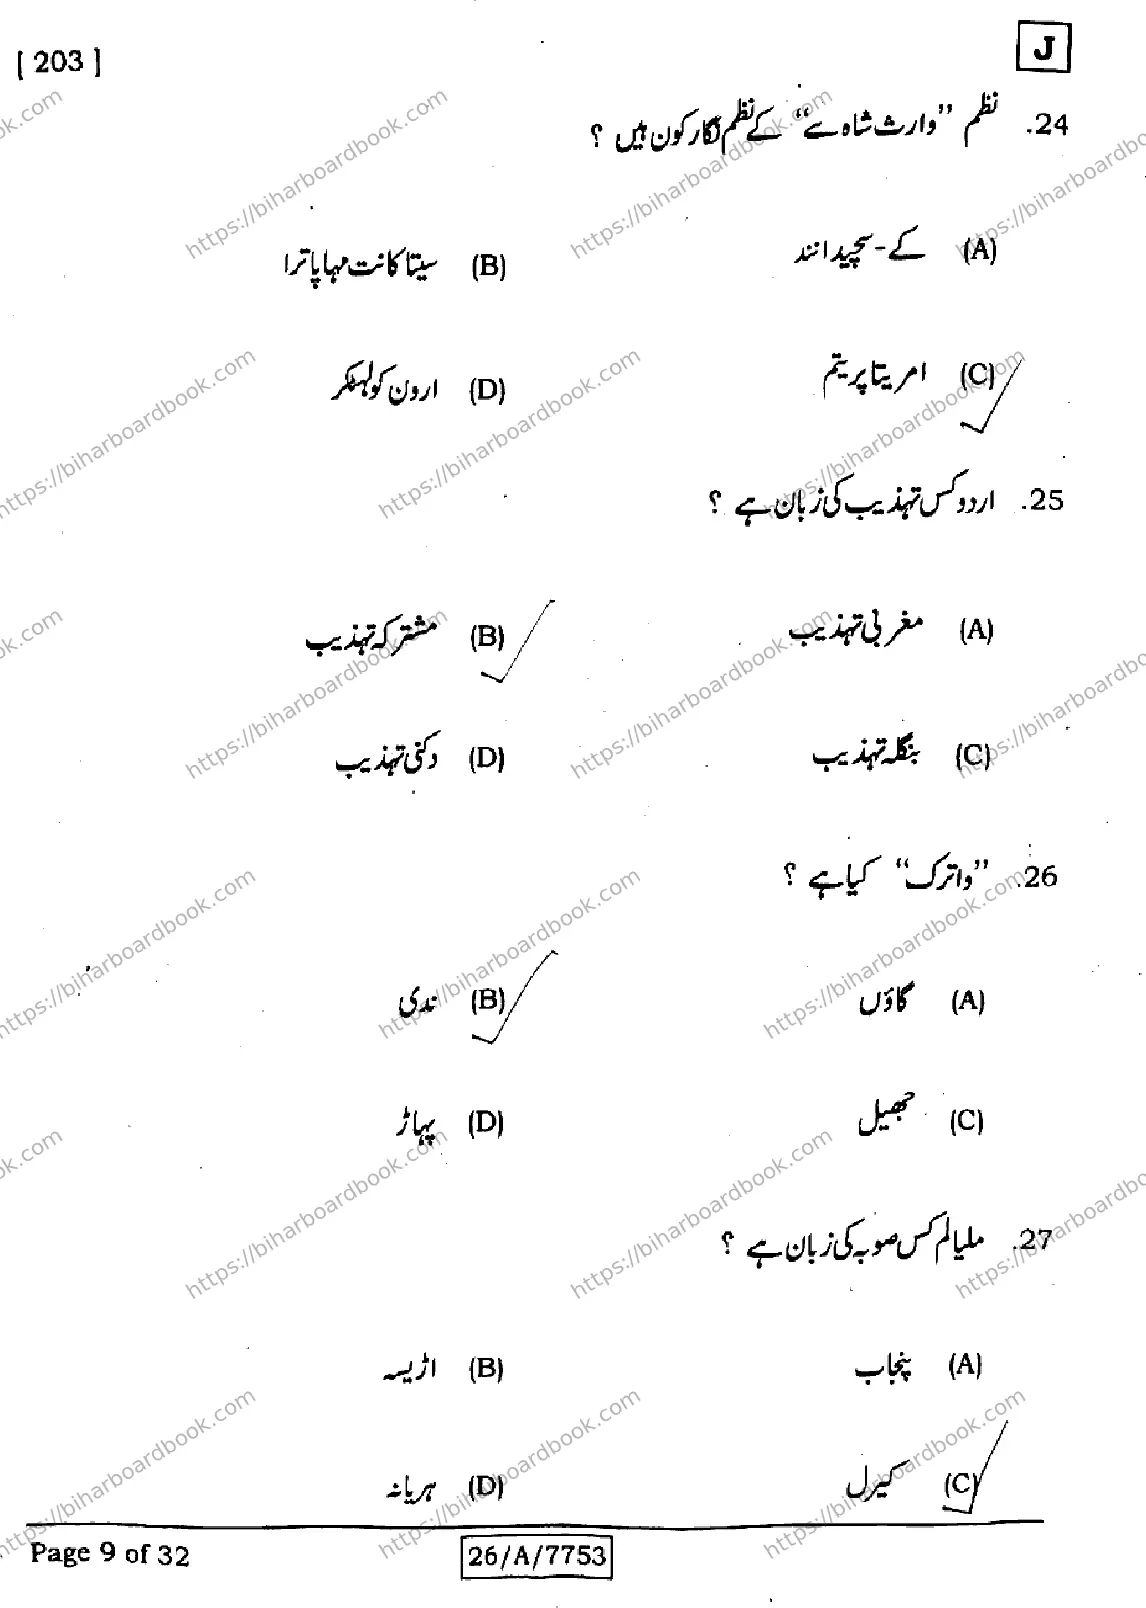 [ 203 ]
J
24. نظم ”وارث شاہ سے“ کے نظم نگار کون ہیں ؟
(A) کے - سچیدانند
(B) سیتا کانت مہاپاترا
(C) امریتا پریتم
(D) ارون کولہٹکر
25. اردو کس تہذیب کی زبان ہے ؟
(A) مغربی تہذیب
(B) مشترکہ تہذیب
(C) بنگلہ تہذیب
(D) دکنی تہذیب
26. ”واترک“ کیا ہے ؟
(A) گاؤں
(B) ندی
(C) جھیل
(D) پہاڑ
27. ملیالم کس صوبہ کی زبان ہے ؟
(A) پنجاب
(B) اڑیسہ
(C) کیرل
(D) ہریانہ
Page 9 of 32
26/A/7753
https://biharboardbook.com